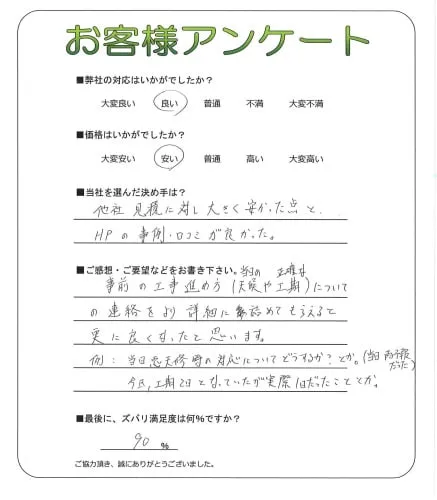 お客様アンケート
■弊社の対応はいかがでしたか？
大変良い 良い 普通 不満 大変不満
■価格はいかがでしたか？
大変安い 安い 普通 高い 大変高い
■当社を選んだ決め手は？
他社見積に対し大きく安かった点と、
HPの事例・口コミが良かった。
■ご感想・ご要望などをお書き下さい。
当日の 正確な
事前の工事進め方(天候や工期)について
の連絡をより詳細に詰めてもらえると
更に良くなったと思います。
例：当日悪天候時の対応についてどうするか？とか。(当日 雨予報だった)
今回、工期2日となっていたが実際1日だったこととか。
■最後に、ズバリ満足度は何%ですか？
90 %
ご協力頂き、誠にありがとうございました。